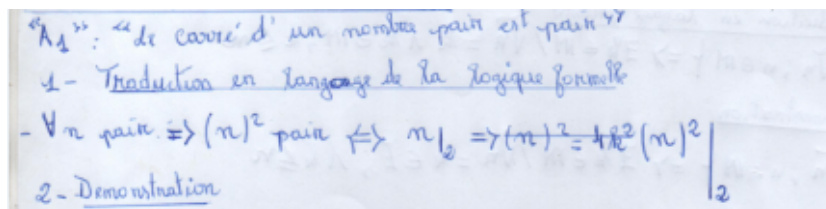 "A₁": "Le carré d'un nombre pair est pair"
1- Traduction en langage de la logique formelle
- ∀n pair ⇒ (n)² pair ⇔ n|₂ ⇒ (n)² = 4k² (n)² |₂
2- Demonstration